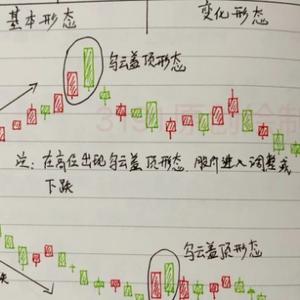 基本形态
变化形态
乌云盖顶形态
注：在高位出现乌云盖顶形态，股价进入调整或
下跌
乌云盖顶形态